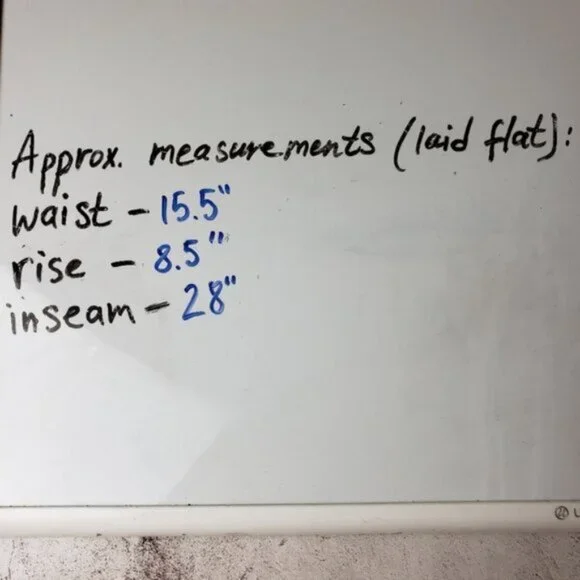 Approx. measurements (laid flat):
waist - 15.5"
rise - 8.5"
inseam - 28"